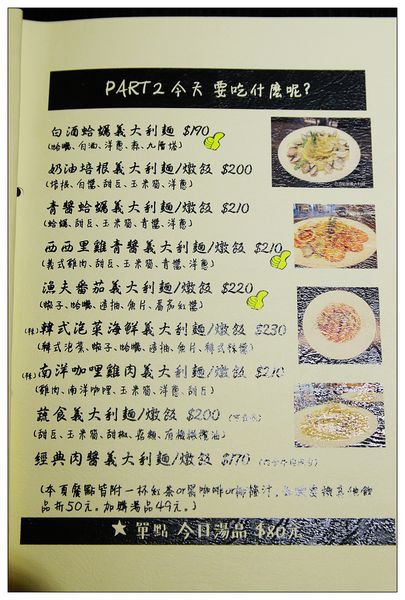 PART2 今天要吃什麼呢?
白酒蛤蠣義大利麵 $190
(蛤蠣、白酒、洋蔥、蒜、九層塔)
奶油培根義大利麵/燉飯 $200
(培根、白醬、甜豆、玉米筍、洋蔥)
青醬蛤蠣義大利麵/燉飯 $210
(蛤蠣、甜豆、玉米筍、青醬、洋蔥)
西西里雞青醬義大利麵/燉飯 $210
(義式雞肉、甜豆、玉米筍、青醬、洋蔥)
漁夫番茄義大利麵/燉飯 $220
(蝦子、蛤蠣、透抽、魚片、番茄紅醬)
(辣)韓式泡菜海鮮義大利麵/燉飯 $230
(韓式泡菜、蝦子、蛤蠣、透抽、魚片、韓式辣醬)
(辣)南洋咖哩雞肉義大利麵/燉飯 $210
(雞肉、南洋咖哩、玉米筍、洋蔥、甜豆)
蔬食義大利麵/燉飯 $200
(甜豆、玉米筍、甜椒、菇類、有機橄欖油)
經典肉醬義大利麵/燉飯 $170
(本頁餐點皆附一杯紅茶or黑咖啡or柳橙汁,
品折50元。加購湯品49元。)
★ 單點 今日湯品 $80元